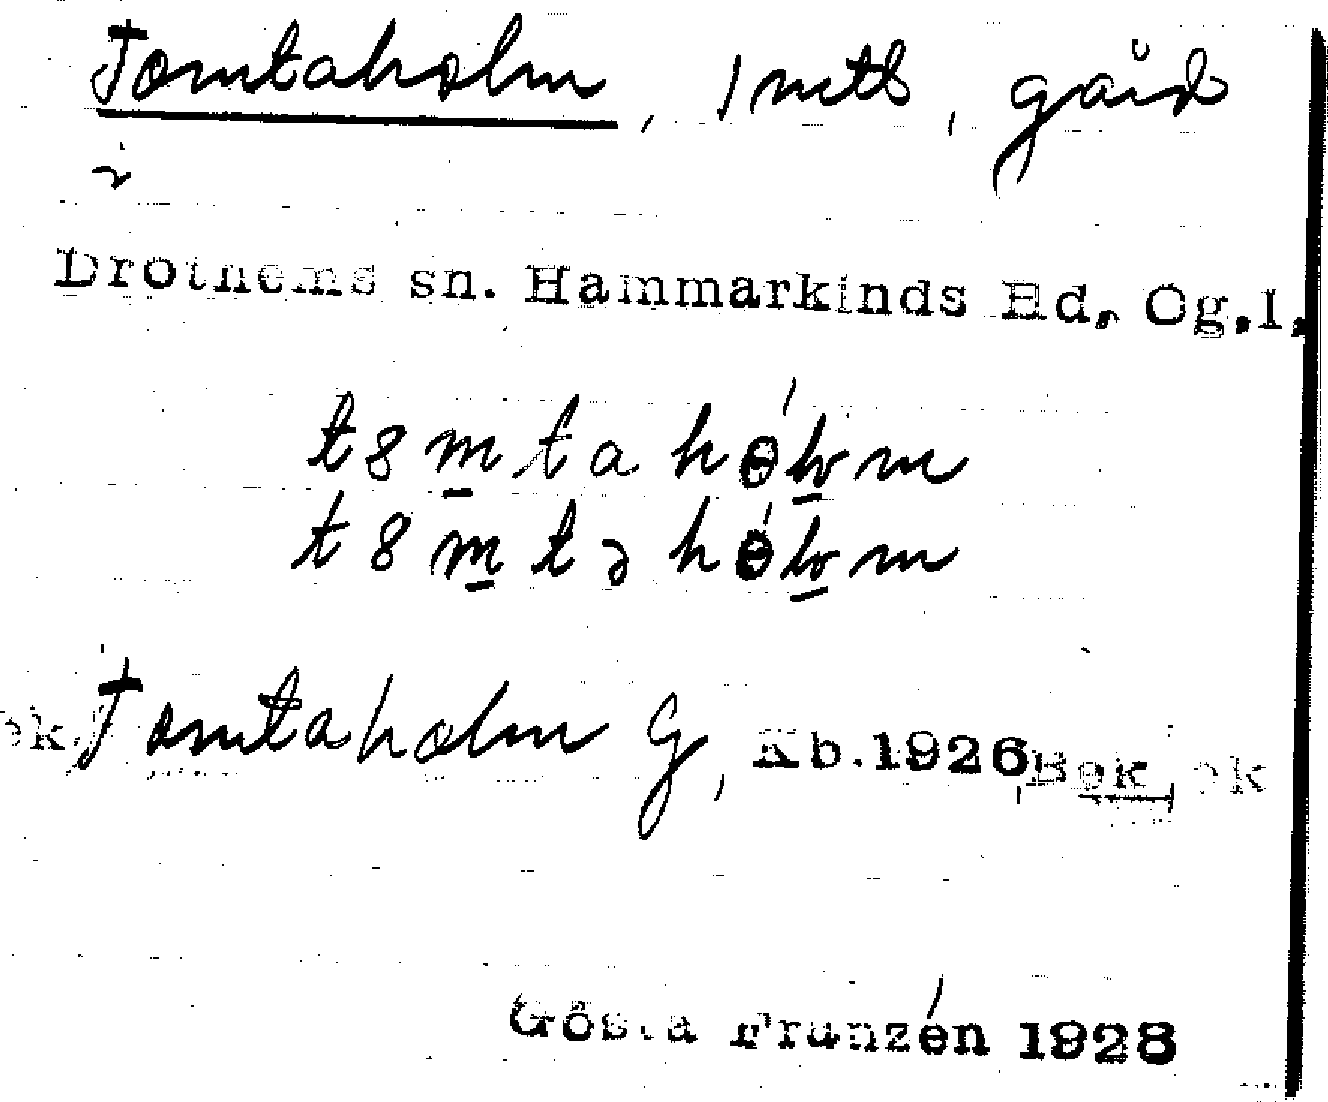 Tomtaholm, 1 mtl, gård
i
Drothems sn. Hammarkinds Hd, Ög.l.
t8mtahólm
t8mtəhólm
ek. Tomtaholm G, Kb.1926, Bek ek
Gösta Franzén 1928